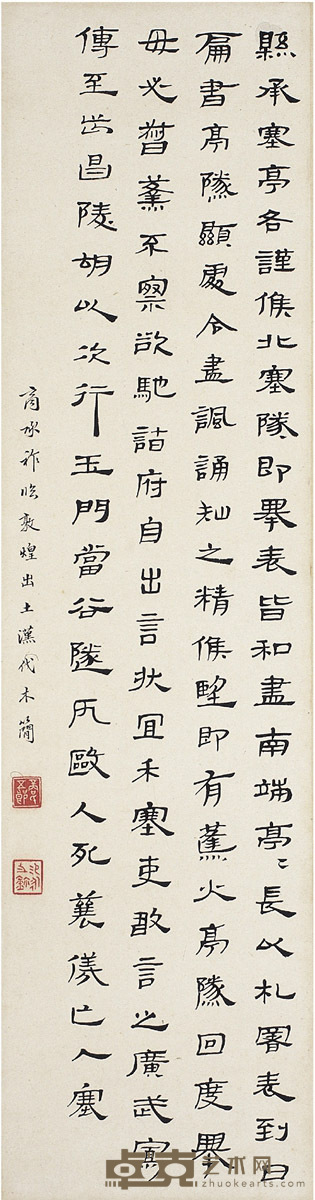 縣承塞亭各謹候北塞隧即舉表皆和盡南端亭〻長以札署表到日
扁書亭隧顯處令盡諷誦知之精候望即有蓬火亭隧回度舉
毋必 不察欲馳詣府自出言狀宜禾塞吏敢言之廣武
傳至 昌陵胡以次行玉門當谷隧 毆人死 儀亡入塞
商承祚臨敦煌出土漢代木簡
卓克艺术网
www.zhuokearts.com